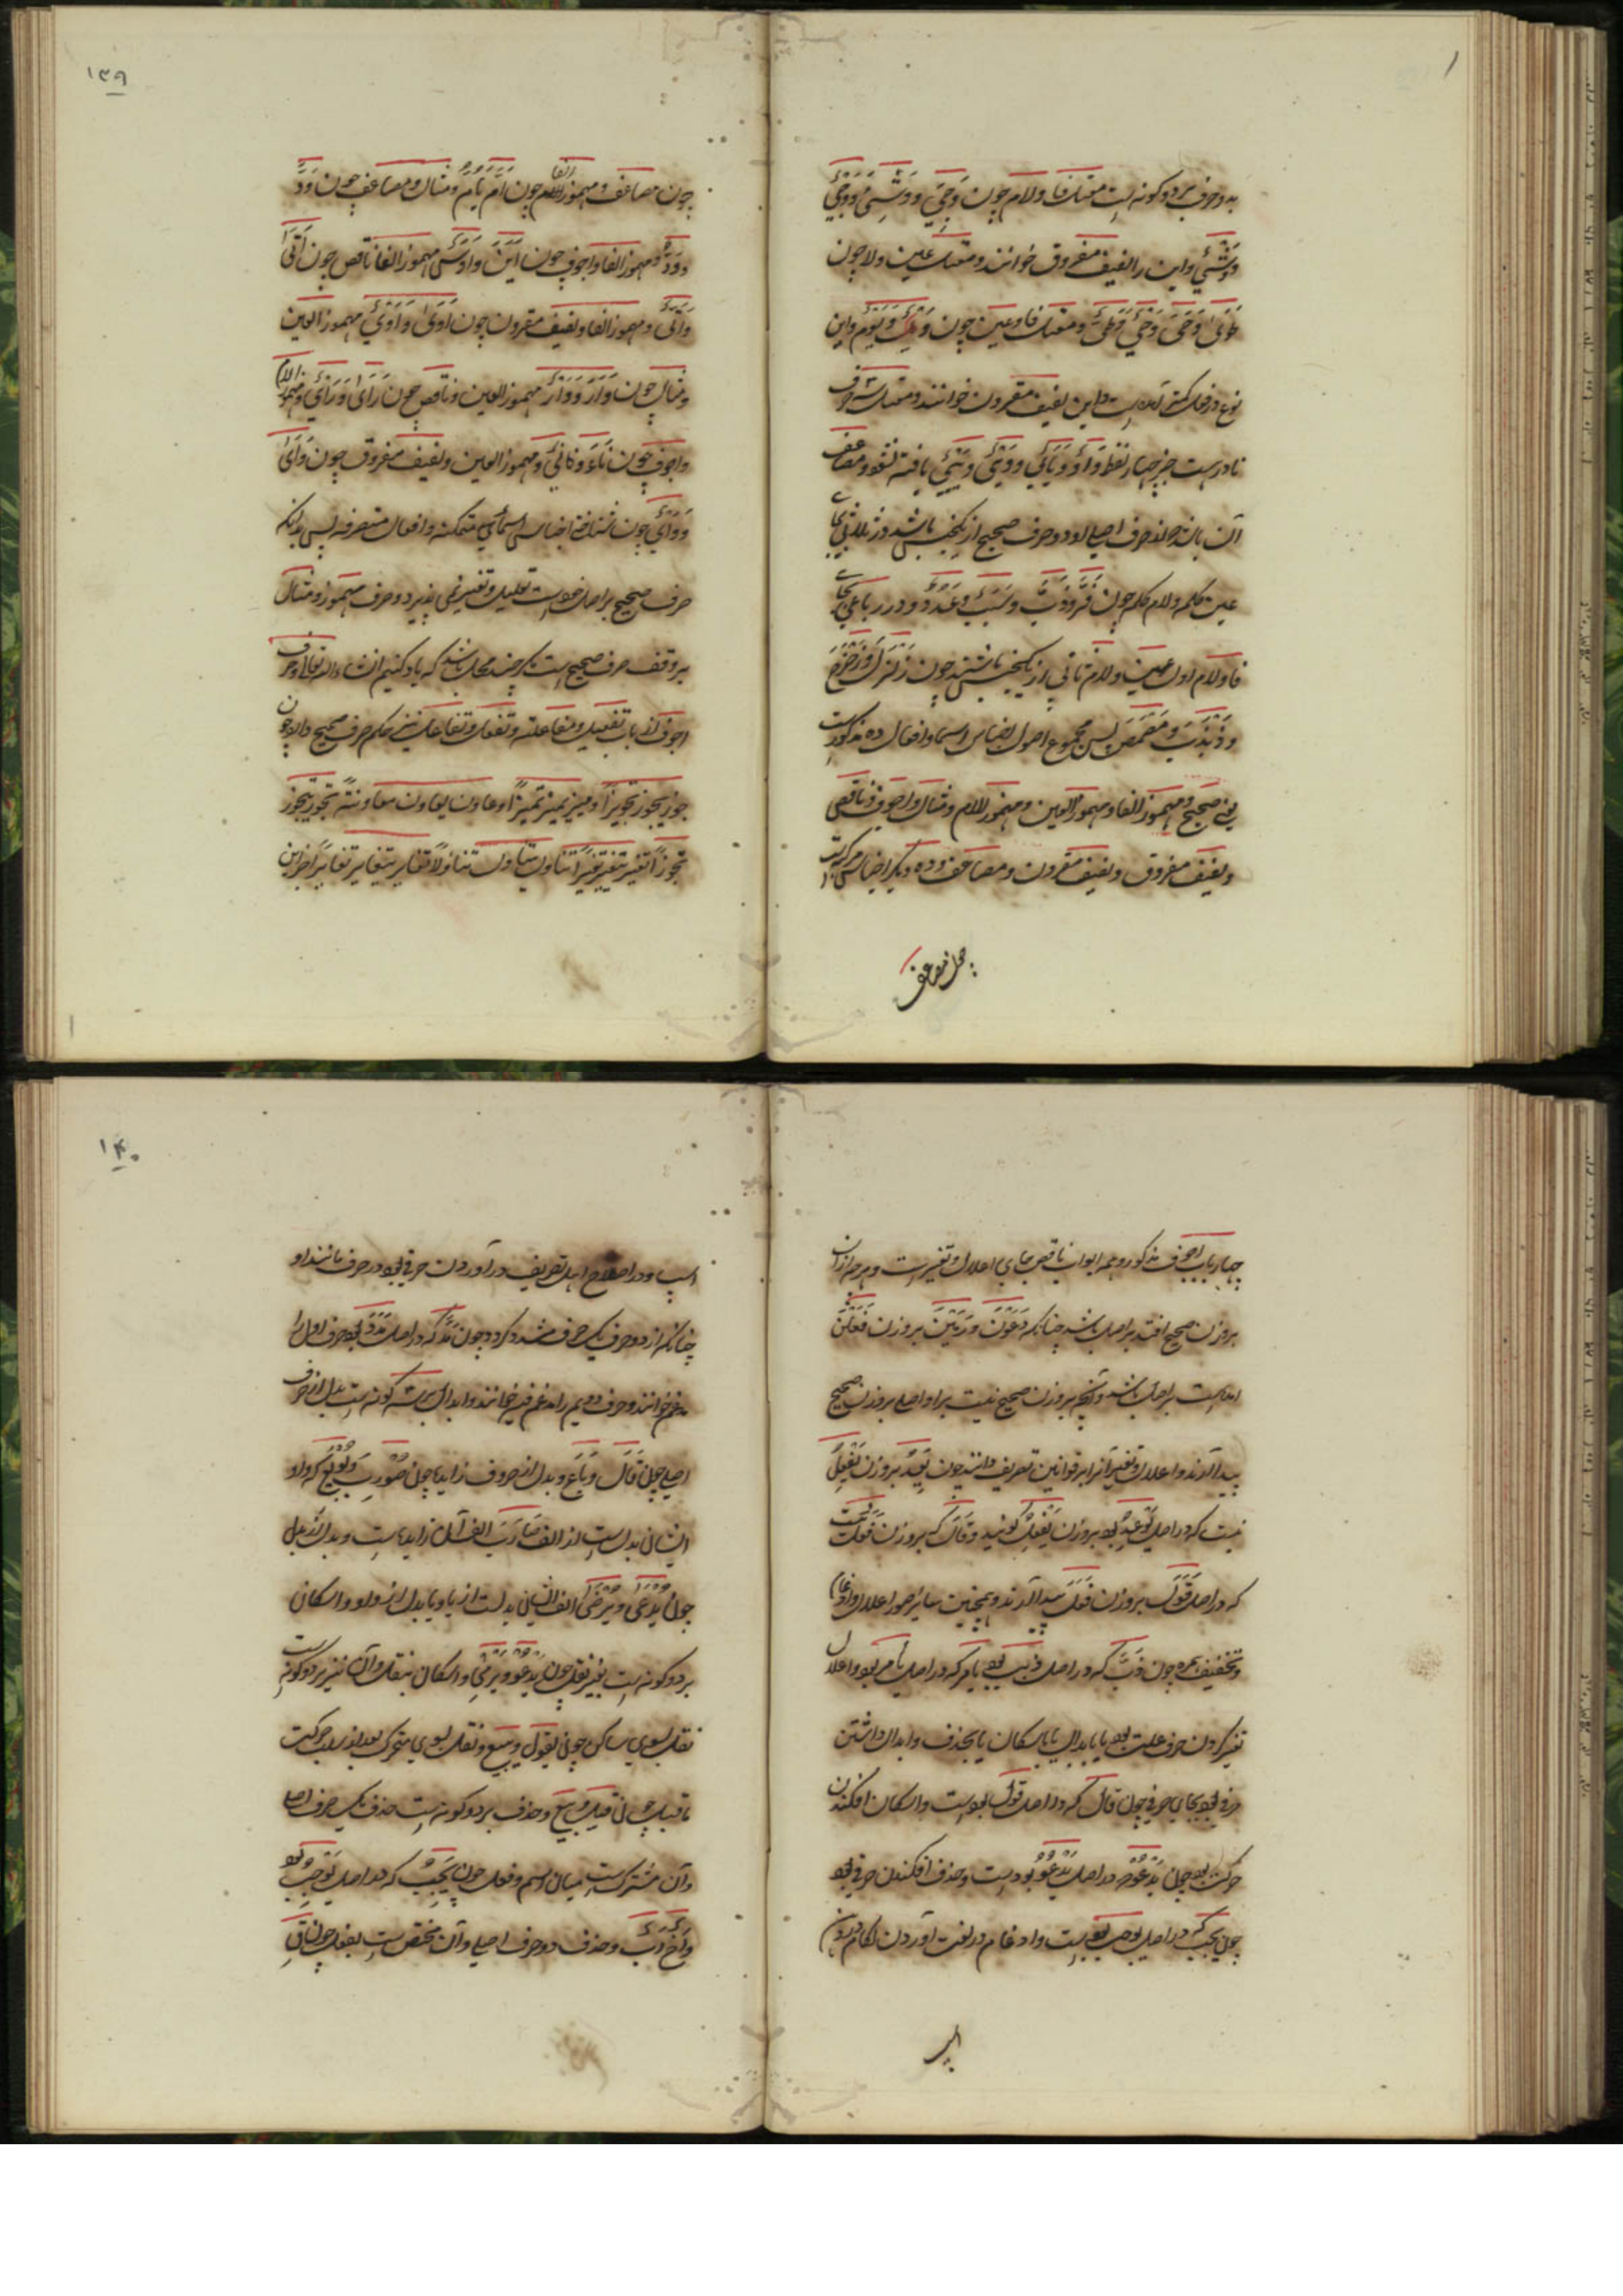 بدو حرف بر دو کونه است معتل فا ولام چون وَجِیَ و وَشِیَ و وَجْیٌ
وَشْیٌ واین را لفیف مفروق خوانند و معتل عین ولام چون
طَوَیَ وَحَیَ وَحَیٌّ وَطَیٌّ ومعتل فا وعین چون وَیْلٌ وَیَوْمٌ واین
نوع در فعل کمتر آمده است واین لفیف مقرون خوانند ومعتل سه حرف
نادر است جز چهار لفظ یافته نشود ومضاعف
آن باشد که دو حرف اصلی او دو حرف صحیح از یک جنس باشد در ثلاثی بجای
عین کلمه ولام کلمه چون فَرَّ وَذَبَّ وَسَبَبٌ وَعَدَدٌ ودر رباعی بجای
فا ولام اول وعین ولام ثانی از یک جنس باشند چون زَلْزَلَ وَزَحْزَحَ
وَذَبْذَبَ وَمَضْمَضَ پس مجموع اصول اجناس اسما وافعال ده مذکور است
یعنی صحیح ومهموز الفا ومهموز العین ومهموز اللام ومثال واجوف وناقص
ولفیف مفروق ولفیف مقرون ومضاعف وده دیگر اجناس مرکب است
چون مضاعف
۱۳۹
چون مضاعف ومهموز الفا چون اَمَّ یَاُمُّ ومثال ومضاعف چون وَدَّ
وَوَدٌّ ومهموز الفا واجوف چون اَیَنَ وَاَوْسٌ مهموز الفا ناقص چون اَتَی
وَاَتْیٌ ومهموز الفا ولفیف مقرون چون اَوَی وَاَوْیٌ مهموز العین
ومثال چون وَأَرَ وَوَأْرٌ مهموز العین وناقص چون رَاَی وَرَأْیٌ ومهموز اللام
واجوف چون نَاءَ ومهموز العین ولفیف مفروق چون وَاَی
وَوَأْیٌ چون شناخته اجناس اسمای متمکنه وافعال متصرفه پس بدانکه
حرف صحیح بر اصل خود است تعلیل وتغییر نمی پذیرد وحرف مهموز ومثال
بر وقف حرف صحیح است مکر چند محل باشد که یاد کنیم انشاء الله تعالی وحرف
اجوف از باب تفعیل ومفاعله وتفعل وتفاعل نیز حکم حرف صحیح دارد چون
جوّز یجوّز تجویزاً ومیّز یمیّز تمییزاً وعاون یعاون معاونة تجوّز یتجوّز
تجوّزاً تغیّر یتغیّر تغیّراً تناول یتناول تناولاً تغایر یتغایر تغایراً جز این
چهار باب اجوف مذکور وهمه ابواب ناقص جای اعلال وتغییر است وهر چه از آن
بر وزن صحیح افتد بر اصل باشد چنانکه دَعَوْنَ وَرَمَیْنَ بر وزن فَعَلْنَ
آمده است بر اصل باشد وآنچه بر وزن صحیح نیست بر او اصلی بر وزن صحیح
پیدا آرند واعلال وتغییر آنرا بر قوانین تصریف دانند چون یَعِدُ بر وزن یَفْعِلُ
نیست که در اصل یَوْعِدُ بود بر وزن یَفْعِلُ کویند وقَالَ که بر وزن فَعَلَ نیست
که در اصل قَوَلَ بر وزن فَعَلَ پیدا آرند وهمچنین سائر صور اعلال وادغام
وتخفیف همزه چون ذَبَّ که در اصل ذَبَبَ بود یامر که در اصل یأمر بود واعلال
تغییر کردن حرف علت بود یا بابدال یا باسکان یا بحذف وابدال داشتن
حرفی بود بجای حرفی چون قال که در اصل قول بود است واسکان افکندن
حرکت بود چون یَدْعُوْ در اصل یَدْعُوُ بود است وحذف افکندن حرفی بود
چون یجب که در اصل یوجب بود است وادغام در لغت آوردن لکام در دهن
اسپ
۱۴۰
اسپ ودر اصطلاح اهل تصریف در آوردن حرفی بود در حرف مانند او
چنانکه از دو حرف یک حرف مشدد کردد چون مَدَّ که در اصل مَدَدَ بود حرف اول را
مدغم خوانند وحرف دویم را مدغم فیه خوانند وابدال بر سه کونه است بدل از حرف
اصلی چون قَالَ وَبَاعَ وبدل از حروف زایده چون ضُوْرِبَ وَبُوْیِعَ که واو
ایشان بدل است از الف ضَارَبَ الف آن زایده است وبدل از بدل
چون یُدْعَی وَیُرْضَی الف ایشان بدلست از یا ویا بدل از واو واسکان
بر دو کونه است بغیر نقل چون یَدْعُوْ وَیَرْمِیْ واسکان بنقل وآن نیز بر دو کونه است
نقل بسوی ساکن چون یَقُول ویبیع ونقل بسوی متحرک بعد از سلب حرکت
ما قبل چون قیل وبیع وحذف بر دو کونه است حذف یک حرف اصلی
وآن مشترک است میان اسم وفعل چون یَجِبُ که در اصل یَوْجِبُ بود
وَاَخٌ وَاَبٌ وحذف دو حرف اصلی وآن مختص است بفعل چون قِ